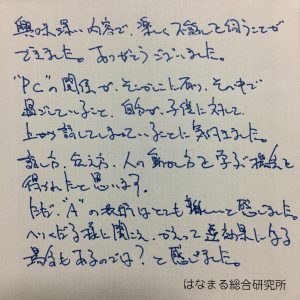 興味深い内容で、楽しく不談して伺うことが
できました。ありがとうございました。
"PC"の関係が、そこかしこに有り、その中で
過ごしていること、自分が子供に対して
上から話してしまっていることに気付きました。
話し方、伝え方、人の動かし方を学ぶ機会を
得られたと思います。
ただ、"A"の表現はとても難しいと感じました。
へりくだる様に聞こえ、かえって逆効果になる
場合もあるのでは？と感じました。
はなまる総合研究所